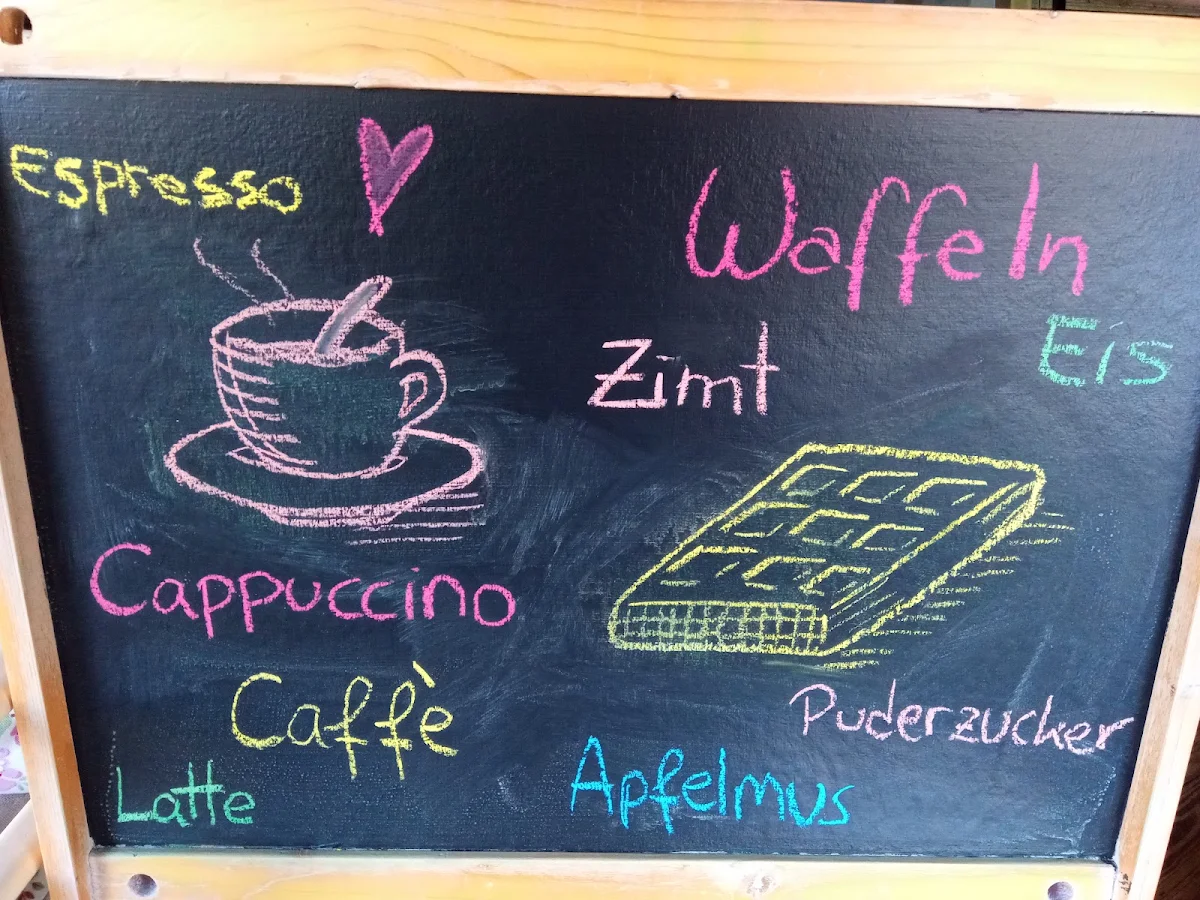 Espresso
Waffeln
Eis
Zimt
Cappuccino
Caffè
Latte
Puderzucker
Apfelmus